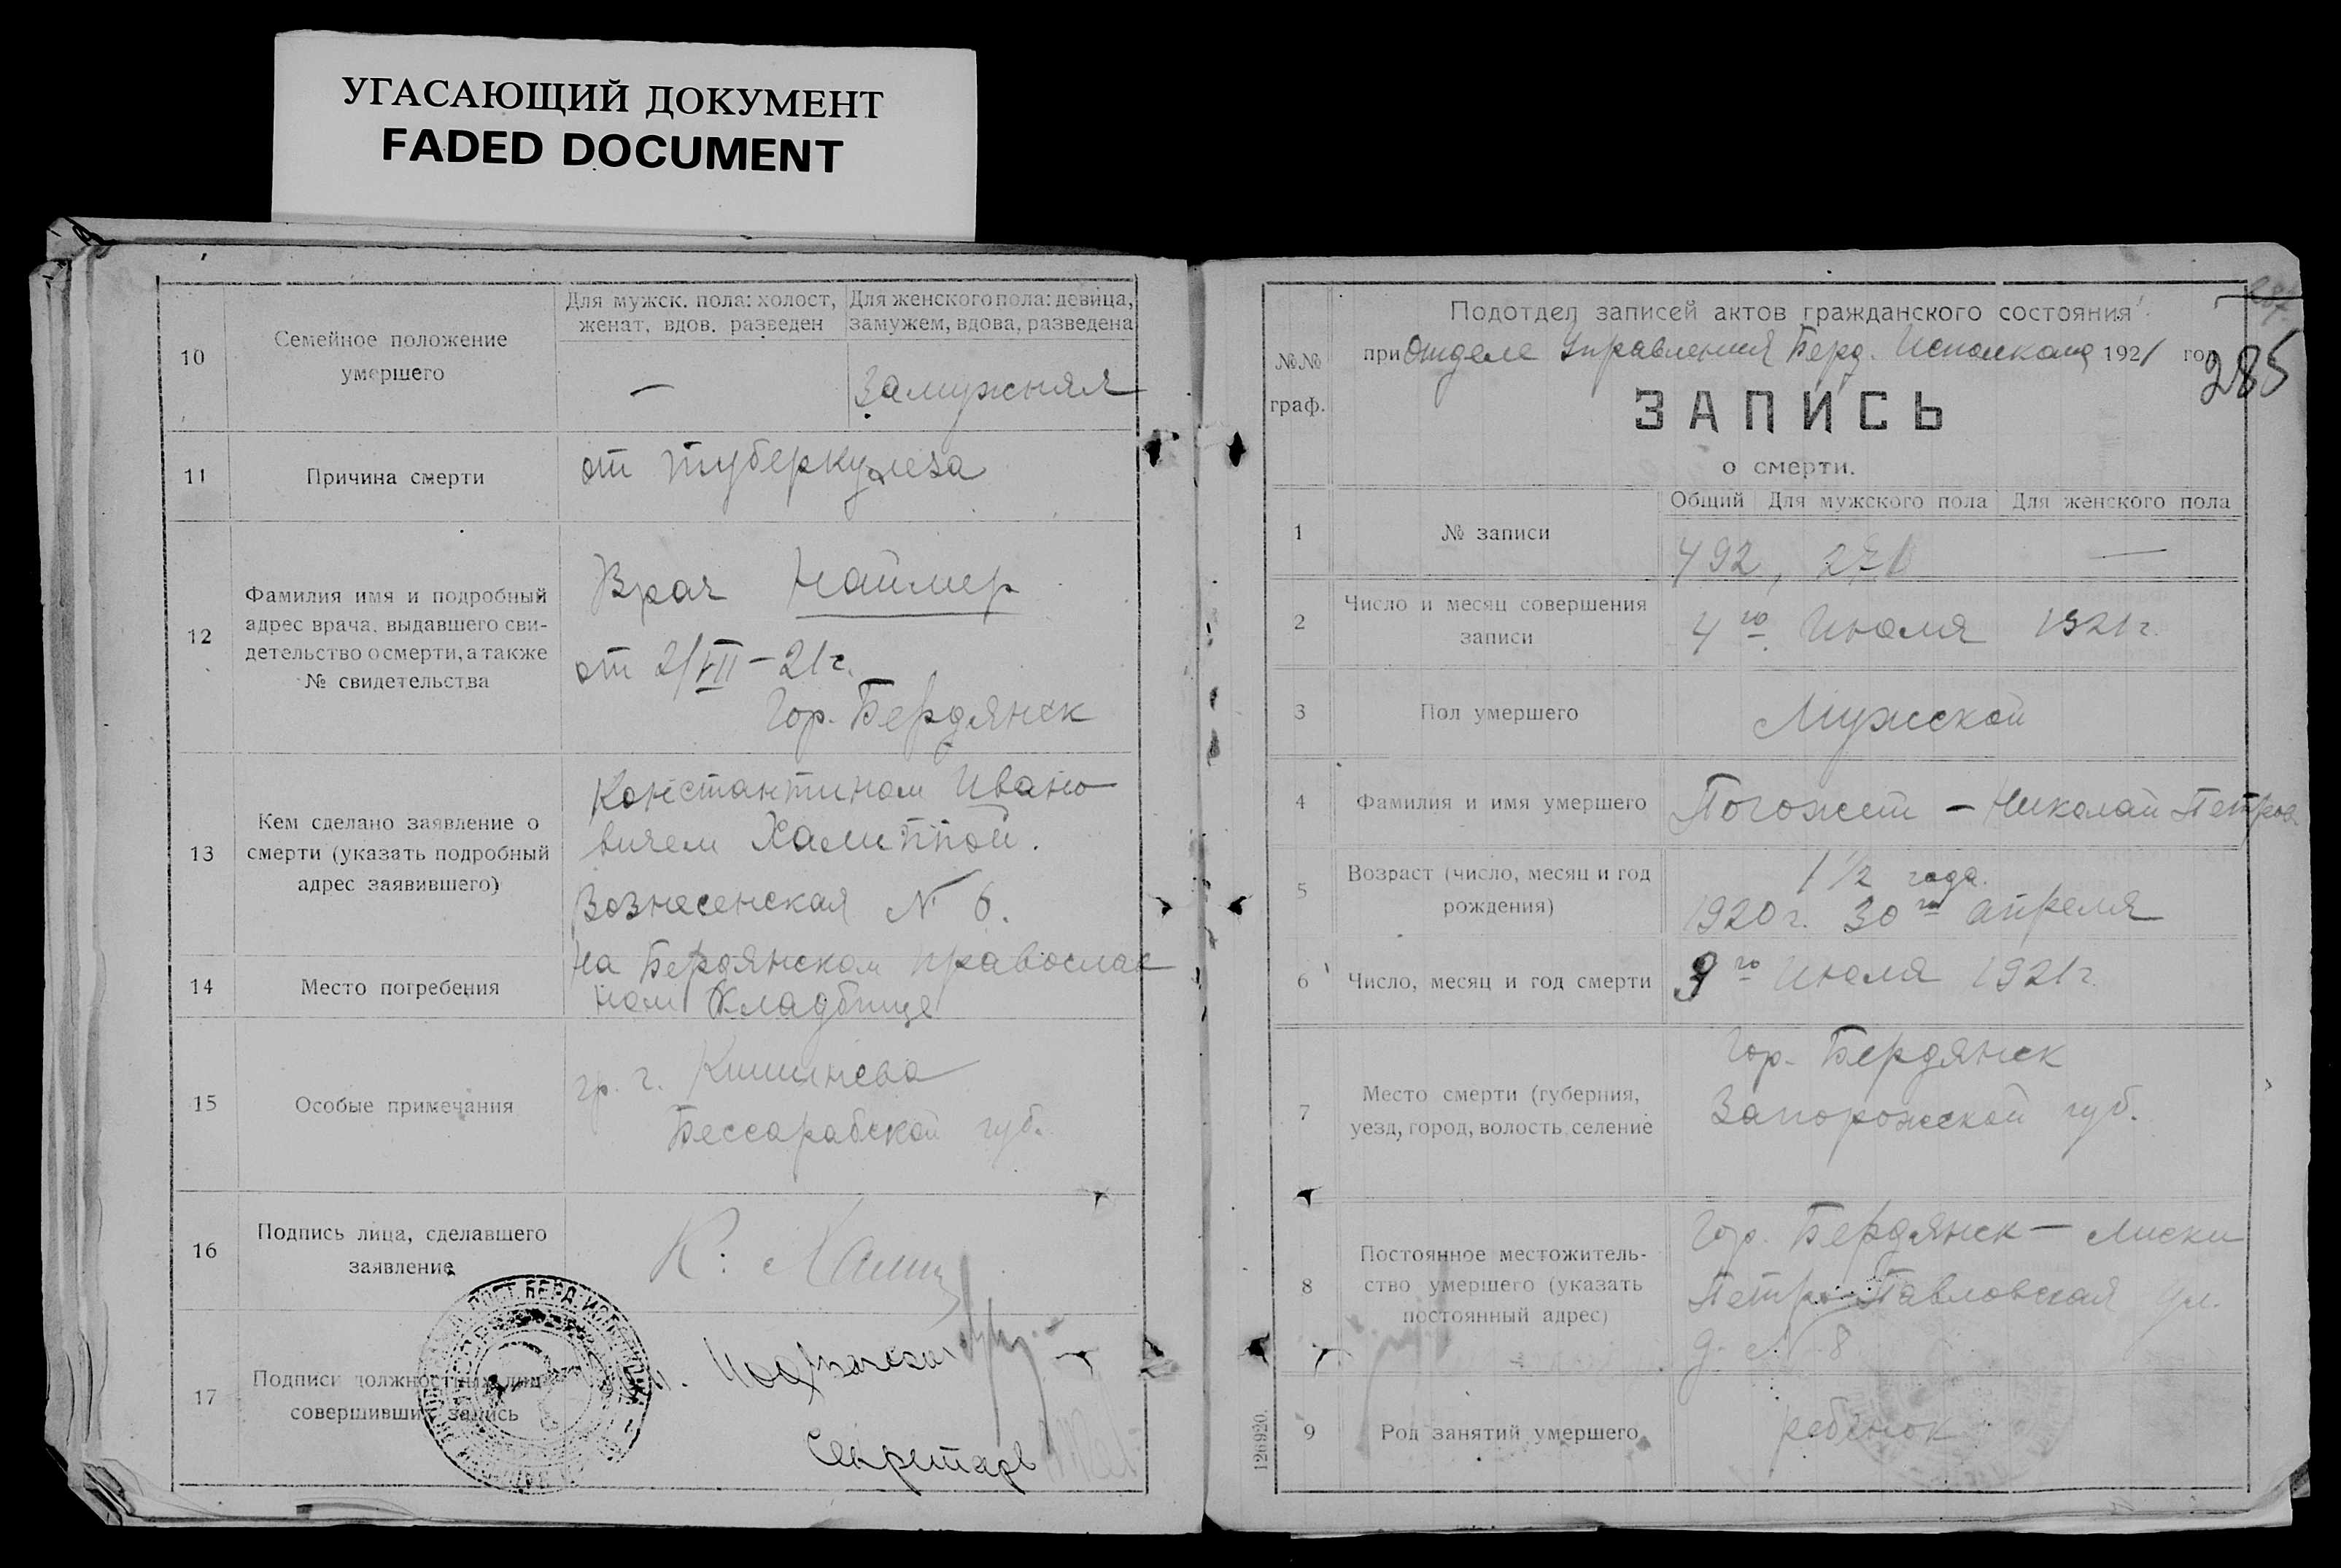 УГАСАЮЩИЙ ДОКУМЕНТ
FADED DOCUMENT
10
Семейное положение
умершего
Для мужск. пола: холост,
женат, вдов, разведен
—
Для женского пола: девица,
замужем, вдова, разведена
Замужняя
11
Причина смерти
от туберкулеза
12
Фамилия имя и подробный
адрес врача, выдавшего сви-
детельство о смерти, а также
№ свидетельства
Врач Наймер
от 2/VII – 21 г.
Гор. Бердянск
13
Кем сделано заявление о
смерти (указать подробный
адрес заявившего)
Константином Ивано
вичем Халиппой.
Вознесенская № 6.
14
Место погребения
на Бердянском православ
ном кладбище
15
Особые примечания
гр. г. Кишинева
Бессарабской губ.
16
Подпись лица, сделавшего
заявление
К. Халип
17
Подписи должностных лиц
совершивших запись
Секретарь
№№
граф.
Подотдел записей актов гражданского состояния
при Отделе Управления Берд. Исполкома 1921 год
285
ЗАПИСЬ
о смерти.
1
№ записи
Общий
Для мужского пола
Для женского пола
492, 271
—
2
Число и месяц совершения
записи
4го Июля 1921 г.
3
Пол умершего
Мужской
4
Фамилия и имя умершего
Погожет – Николай Петров
5
Возраст (число, месяц и год
рождения)
1 1/2 года.
1920 г. 30го апреля
6
Число, месяц и год смерти
3го Июля 1921 г.
7
Место смерти (губерния,
уезд, город, волость, селение
Гор. Бердянск
Запорожской губ.
8
Постоянное местожитель-
ство умершего (указать
постоянный адрес)
Гор. Бердянск – Лиски
Петро-Павловская ул.
д. № 8
9
Род занятий умершего
ребенок
126920.